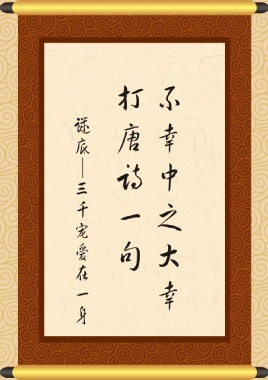 不幸中之大幸
打唐诗一句
谜底——三千宠爱在一身